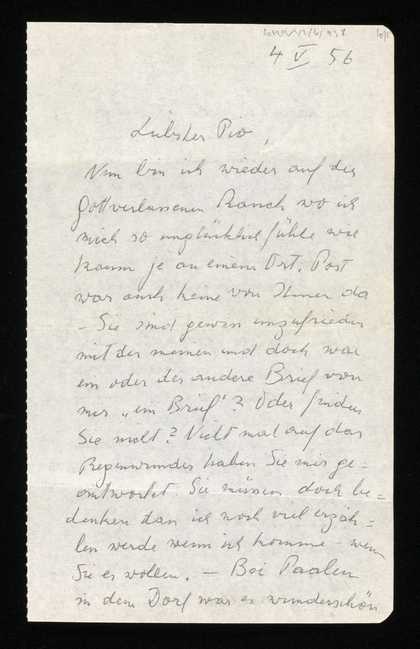 4 V 56
Liebster Pio,
Nun bin ich wieder auf der
gottverlassenen Ranch wo ich
mich so unglücklich fühle wie
kaum je an einem Ort. Post
war auch keine von Ihnen da
– Sie sind gewiss unzufrieden
mit der meinen und doch war
ein oder der andere Brief von
mir „ein Brief"? Oder finden
Sie nicht? Nicht mal auf das
Regenwunder haben Sie mir ge-
antwortet. Sie müssen doch be-
denken dass ich noch viel erzäh-
len werde wenn ich komme – wenn
Sie es wollen. – Bei Paalen
in dem Dorf war es wunderschön